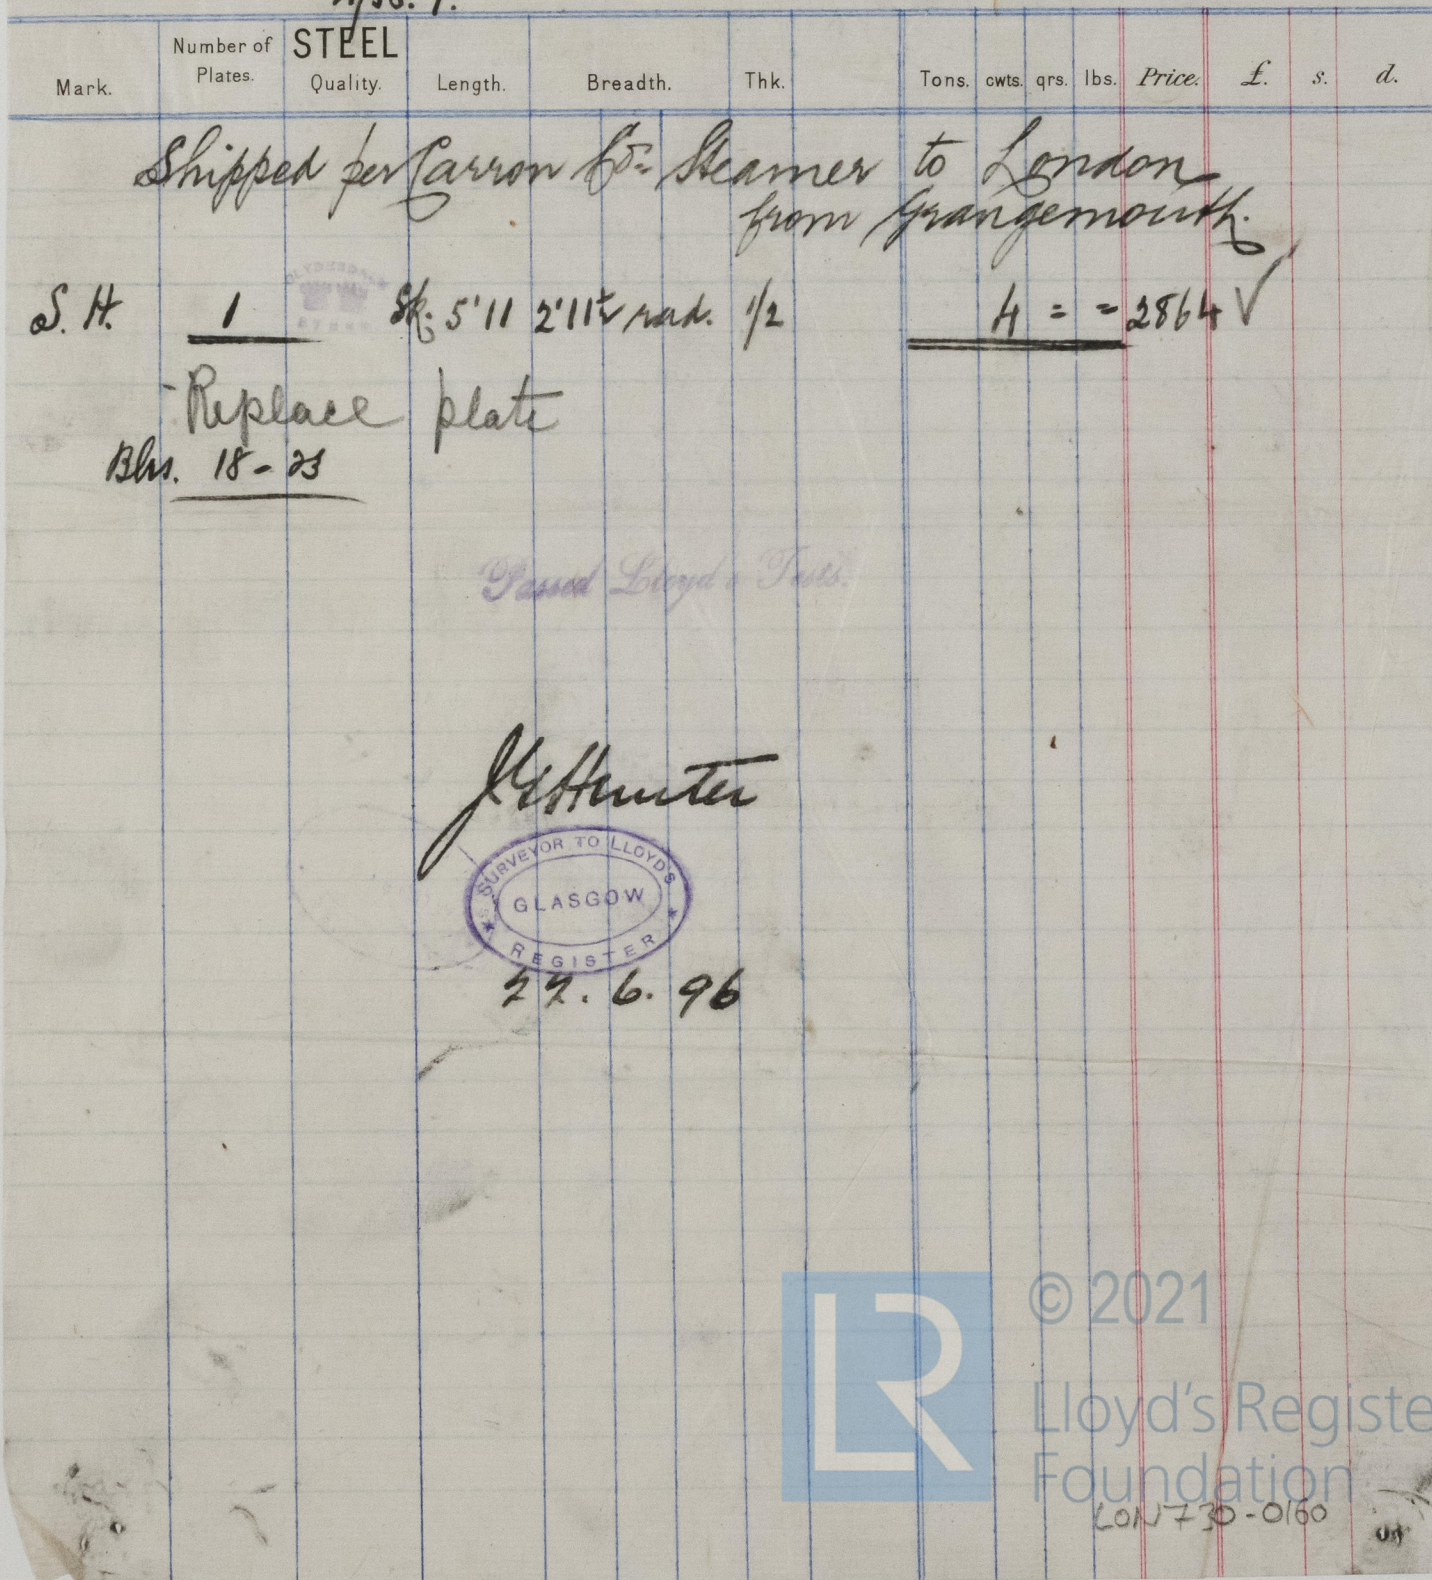 Mark. Number of Plates. STEEL Quality. Length. Breadth. Thk. Tons. cwts. qrs. lbs. Price. £. s. d.
Shipped per Carron Co. Steamer to London
from Grangemouth.
S. H. 1 Sk. 5'11 2'11½ rad. 1/2 4 = = 2864 √
Replace plate
Blrs. 18 - 23
Passed Lloyd's Tests.
Hunter
SURVEYOR TO LLOYD'S
GLASGOW
REGISTER
22. 6. 96
© 2021
Lloyd's Registe
Foundation
LON730-0160